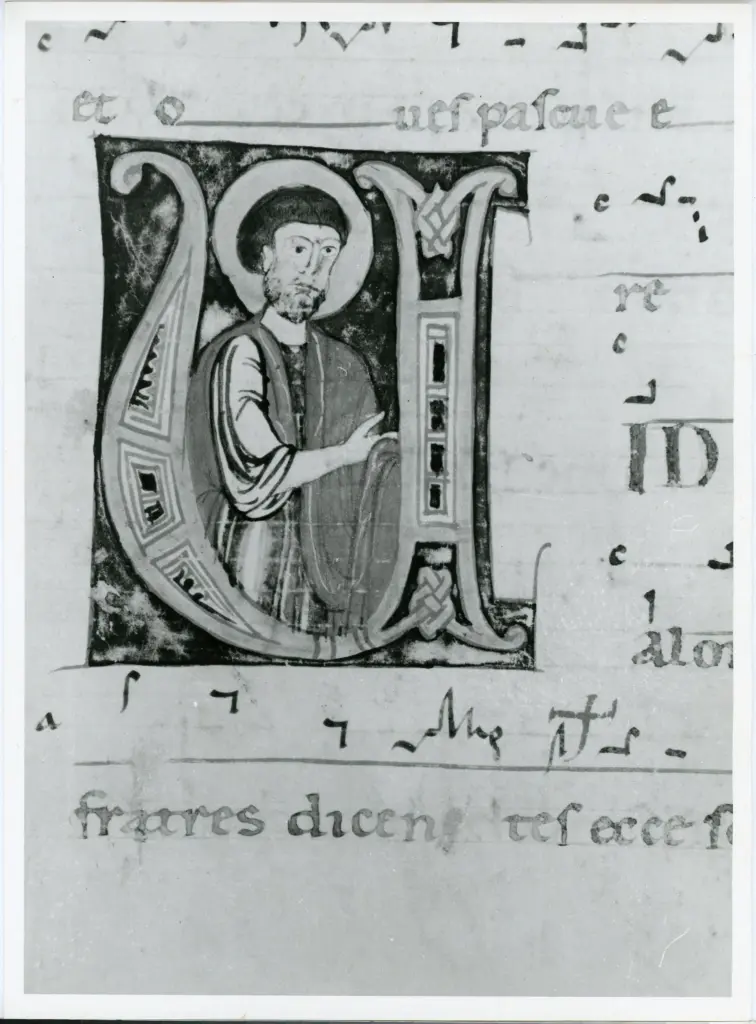 et o ues pascue e
re
UID
alon
fratres dicen tes ecce so